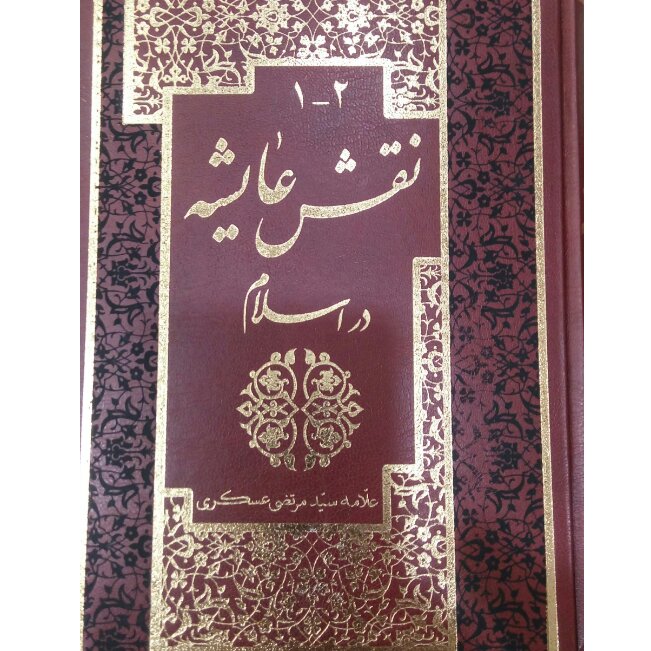 ۱-۲
نقش عایشه
در اسلام
علّامه سیّد مرتضی عسکری